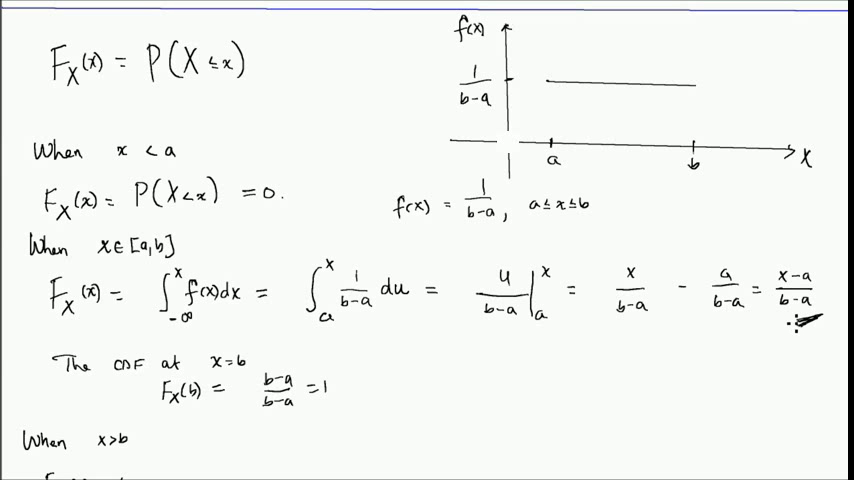 F_X(x) = P(X ≤ x)
f(x)
1/(b-a)
a b X
When x < a
F_X(x) = P(X < x) = 0.
f(x) = 1/(b-a), a ≤ x ≤ b
When x ∈ [a,b]
F_X(x) = ∫_{-∞}^{x} f(x)dx = ∫_a^x 1/(b-a) du = u/(b-a) |_a^x = x/(b-a) - a/(b-a) = (x-a)/(b-a)
The CDF at x=b
F_X(b) = (b-a)/(b-a) = 1
When x>b